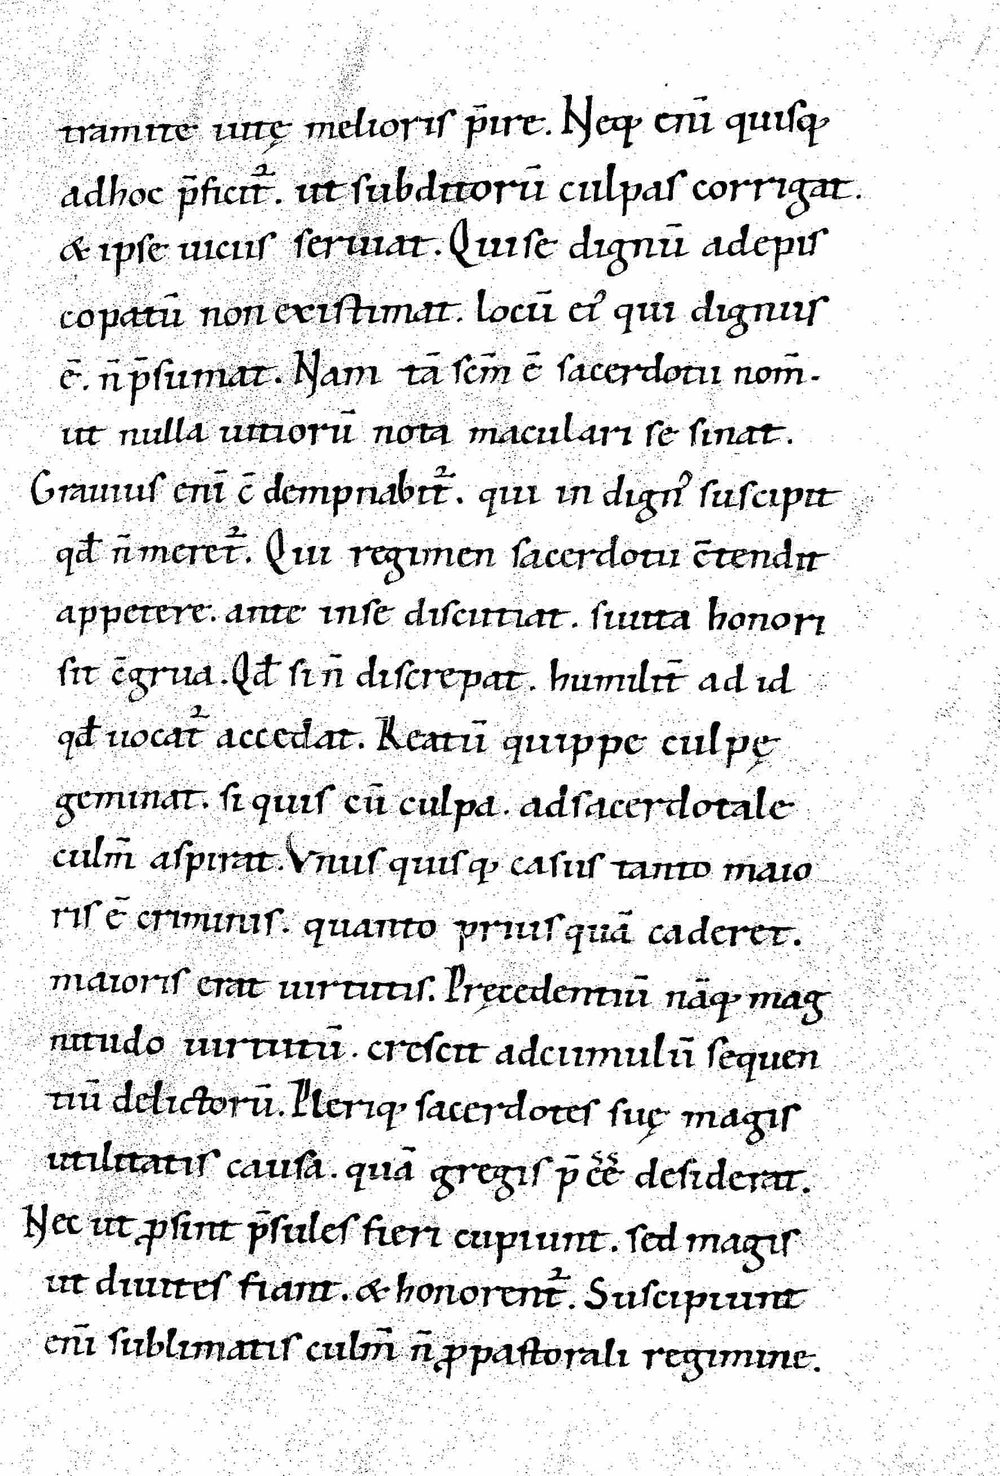 tramite uitę melioris p̄ire. Neq; eni̅ quisq;
adhoc p̄ficit᷑. ut subditoru̅ culpas corrigat.
& ipse uiciis seruiat. Qui se dignu̅ adepis
copatu̅ non existimat. locu̅ ei᷒ qui dignus
e̅. n̅ p̄sumat. Nam ta̅ sc̅m e̅ sacerdotii nom̅.
ut nulla uitioru̅ nota maculari se sinat.
Grauius eni̅ c̅dempnabit᷑. qui in dign᷒ suscipit
qđ n̅ meret᷑. Qui regimen sacerdotii c̅tendit
appetere. ante in se discutiat. si uita honori
sit c̅grua. Qđ si n̅ discrepat. humilit̅ ad id
qđ uocat᷑ accedat. Reatu̅ quippe culpę
geminat. si quis cu̅ culpa. ad sacerdotale
culm̅ aspirat. Vnus quisq; casus tanto maio
ris e̅ criminis. quanto prius qua̅ caderet.
maioris erat uirtutis. Pręcedentiu̅ na̅q; mag
nitudo uirtutu̅. crescit ad cumulu̅ sequen
tiu̅ delictoru̅. Pleriq; sacerdotes suę magis
utilitatis causa. qua̅ gregis p̄e̅e̅ desiderat.
Nec ut ꝓsint p̄sules fieri cupiunt. sed magis
ut diuites fiant. & honorent᷑. Suscipiunt
eni̅ sublimatis culm̅ n̅ ꝓ pastorali regimine.